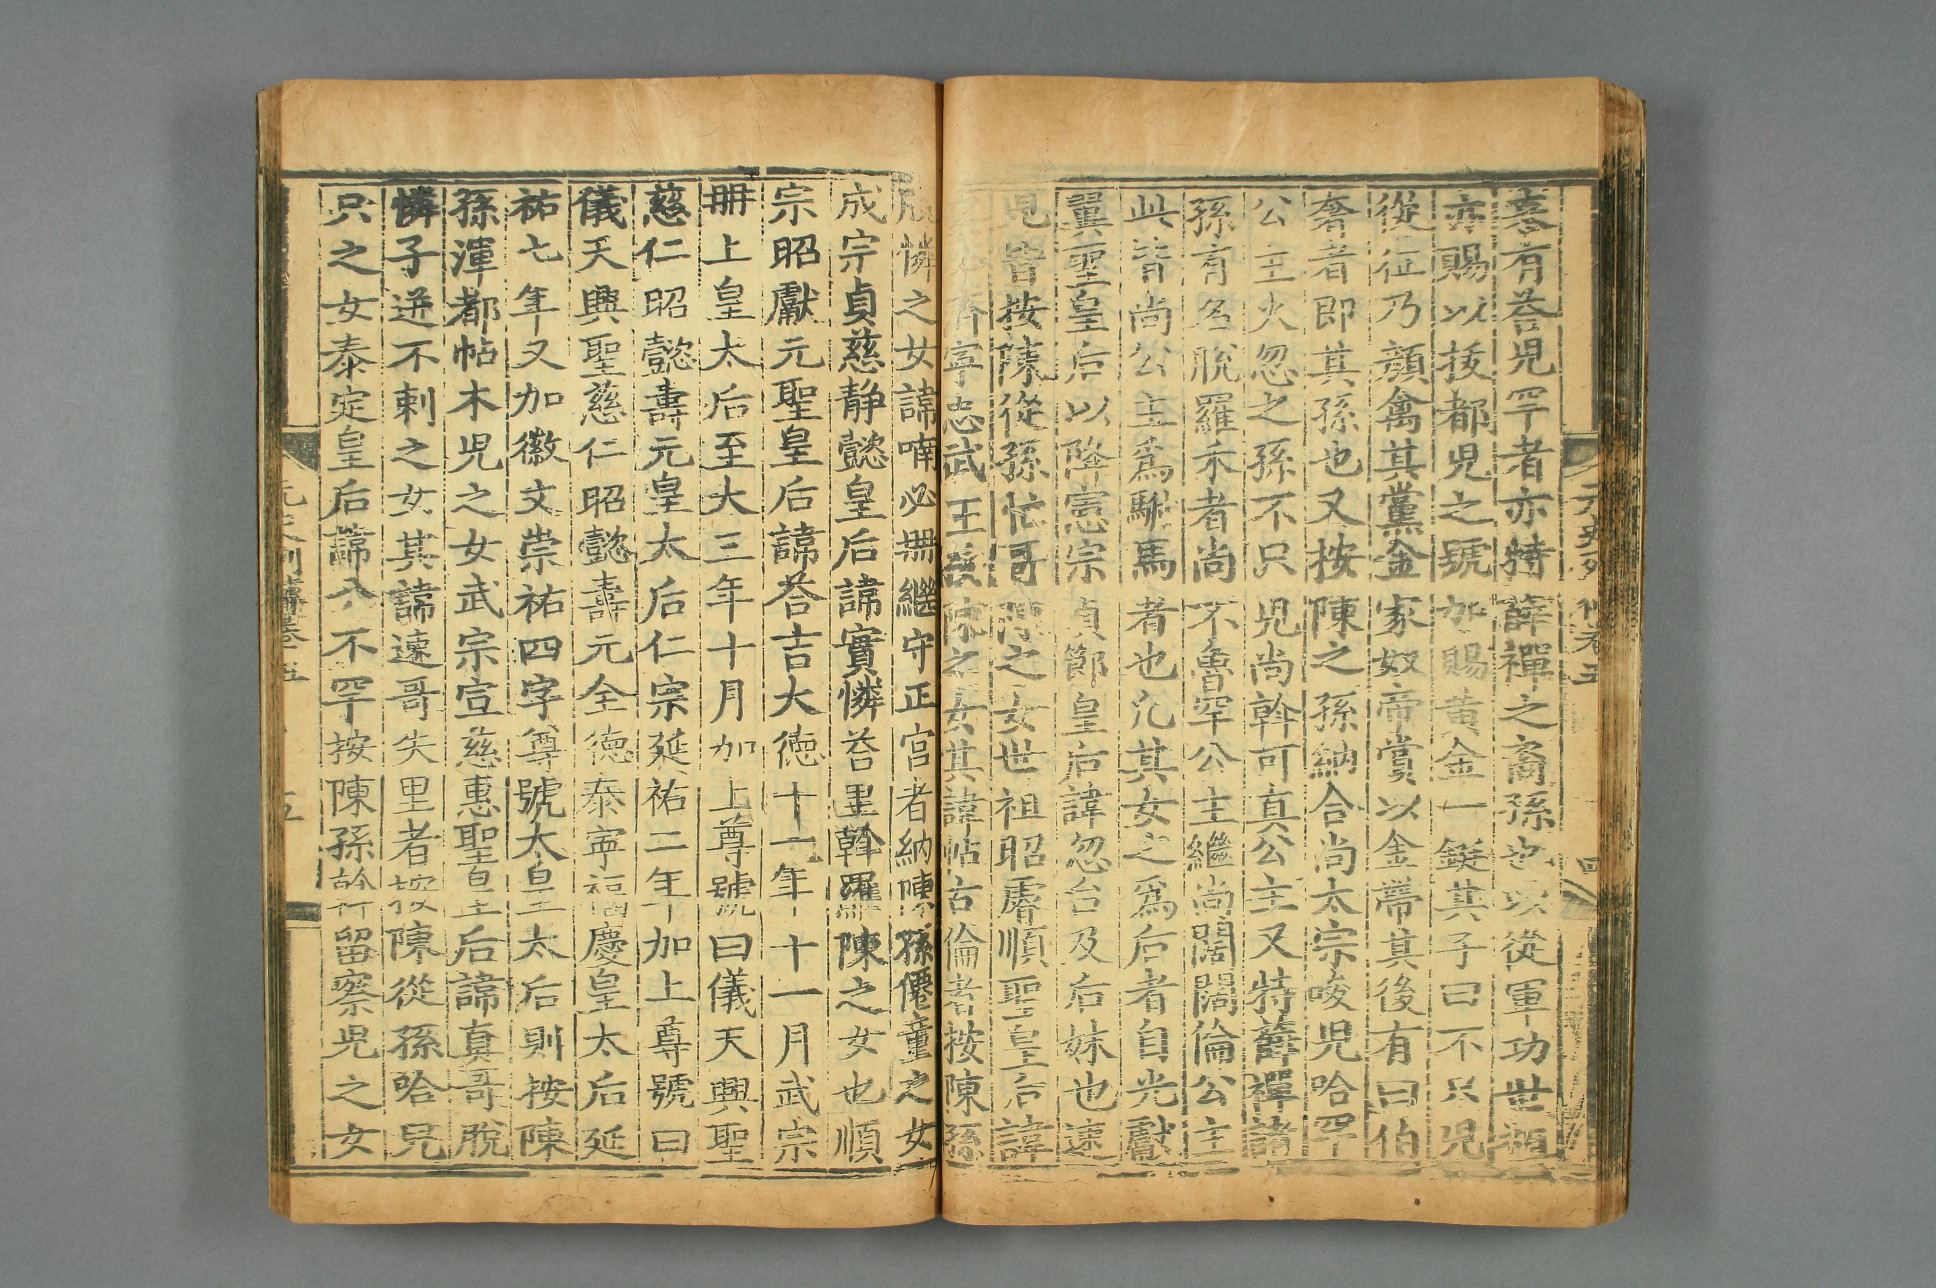 裔有荅兒罕者亦特薛禪之裔孫也以從軍功世祖
亦賜以拔都兒之號加賜黃金一鋌其子曰不只兒
從征乃顏禽其黨金家奴帝賞以金帶其後有曰伯
奢者即其孫也又按陳之孫納合尚太宗唆兒哈罕
公主火忽之孫不只兒尚斡可真公主又特薛禪諸
孫有名脫羅禾者尚不魯罕公主繼尚闊闊倫公主
此皆尚公主爲駙馬者也凡其女之爲后者自光獻
翼聖皇后以降憲宗貞節皇后諱忽台及后妹也速
兒皆按陳從孫忙哥陳之女世祖昭睿順聖皇后諱
濟寧忠武王按陳之女其諱帖古倫者按陳孫
脫憐之女諱喃必冊繼守正宮者納陳孫僊童之女
成宗貞慈静懿皇后諱實憐荅里斡羅陳之女也順
宗昭獻元聖皇后諱荅吉大德十一年十一月武宗
冊上皇太后至大三年十月加上尊號曰儀天興聖
慈仁昭懿壽元皇太后仁宗延祐二年加上尊號曰
儀天興聖慈仁昭懿壽元全德泰寧福慶皇太后延
祐七年又加徽文崇祐四字尊號大皇太后則按陳
孫渾都帖木兒之女武宗宣慈惠聖皇后諱真哥脫
憐子迸不剌之女其諱速哥失里者按陳從孫哈兒
只之女泰定皇后諱八不罕按陳孫斡留察兒之女
元史列傳卷五